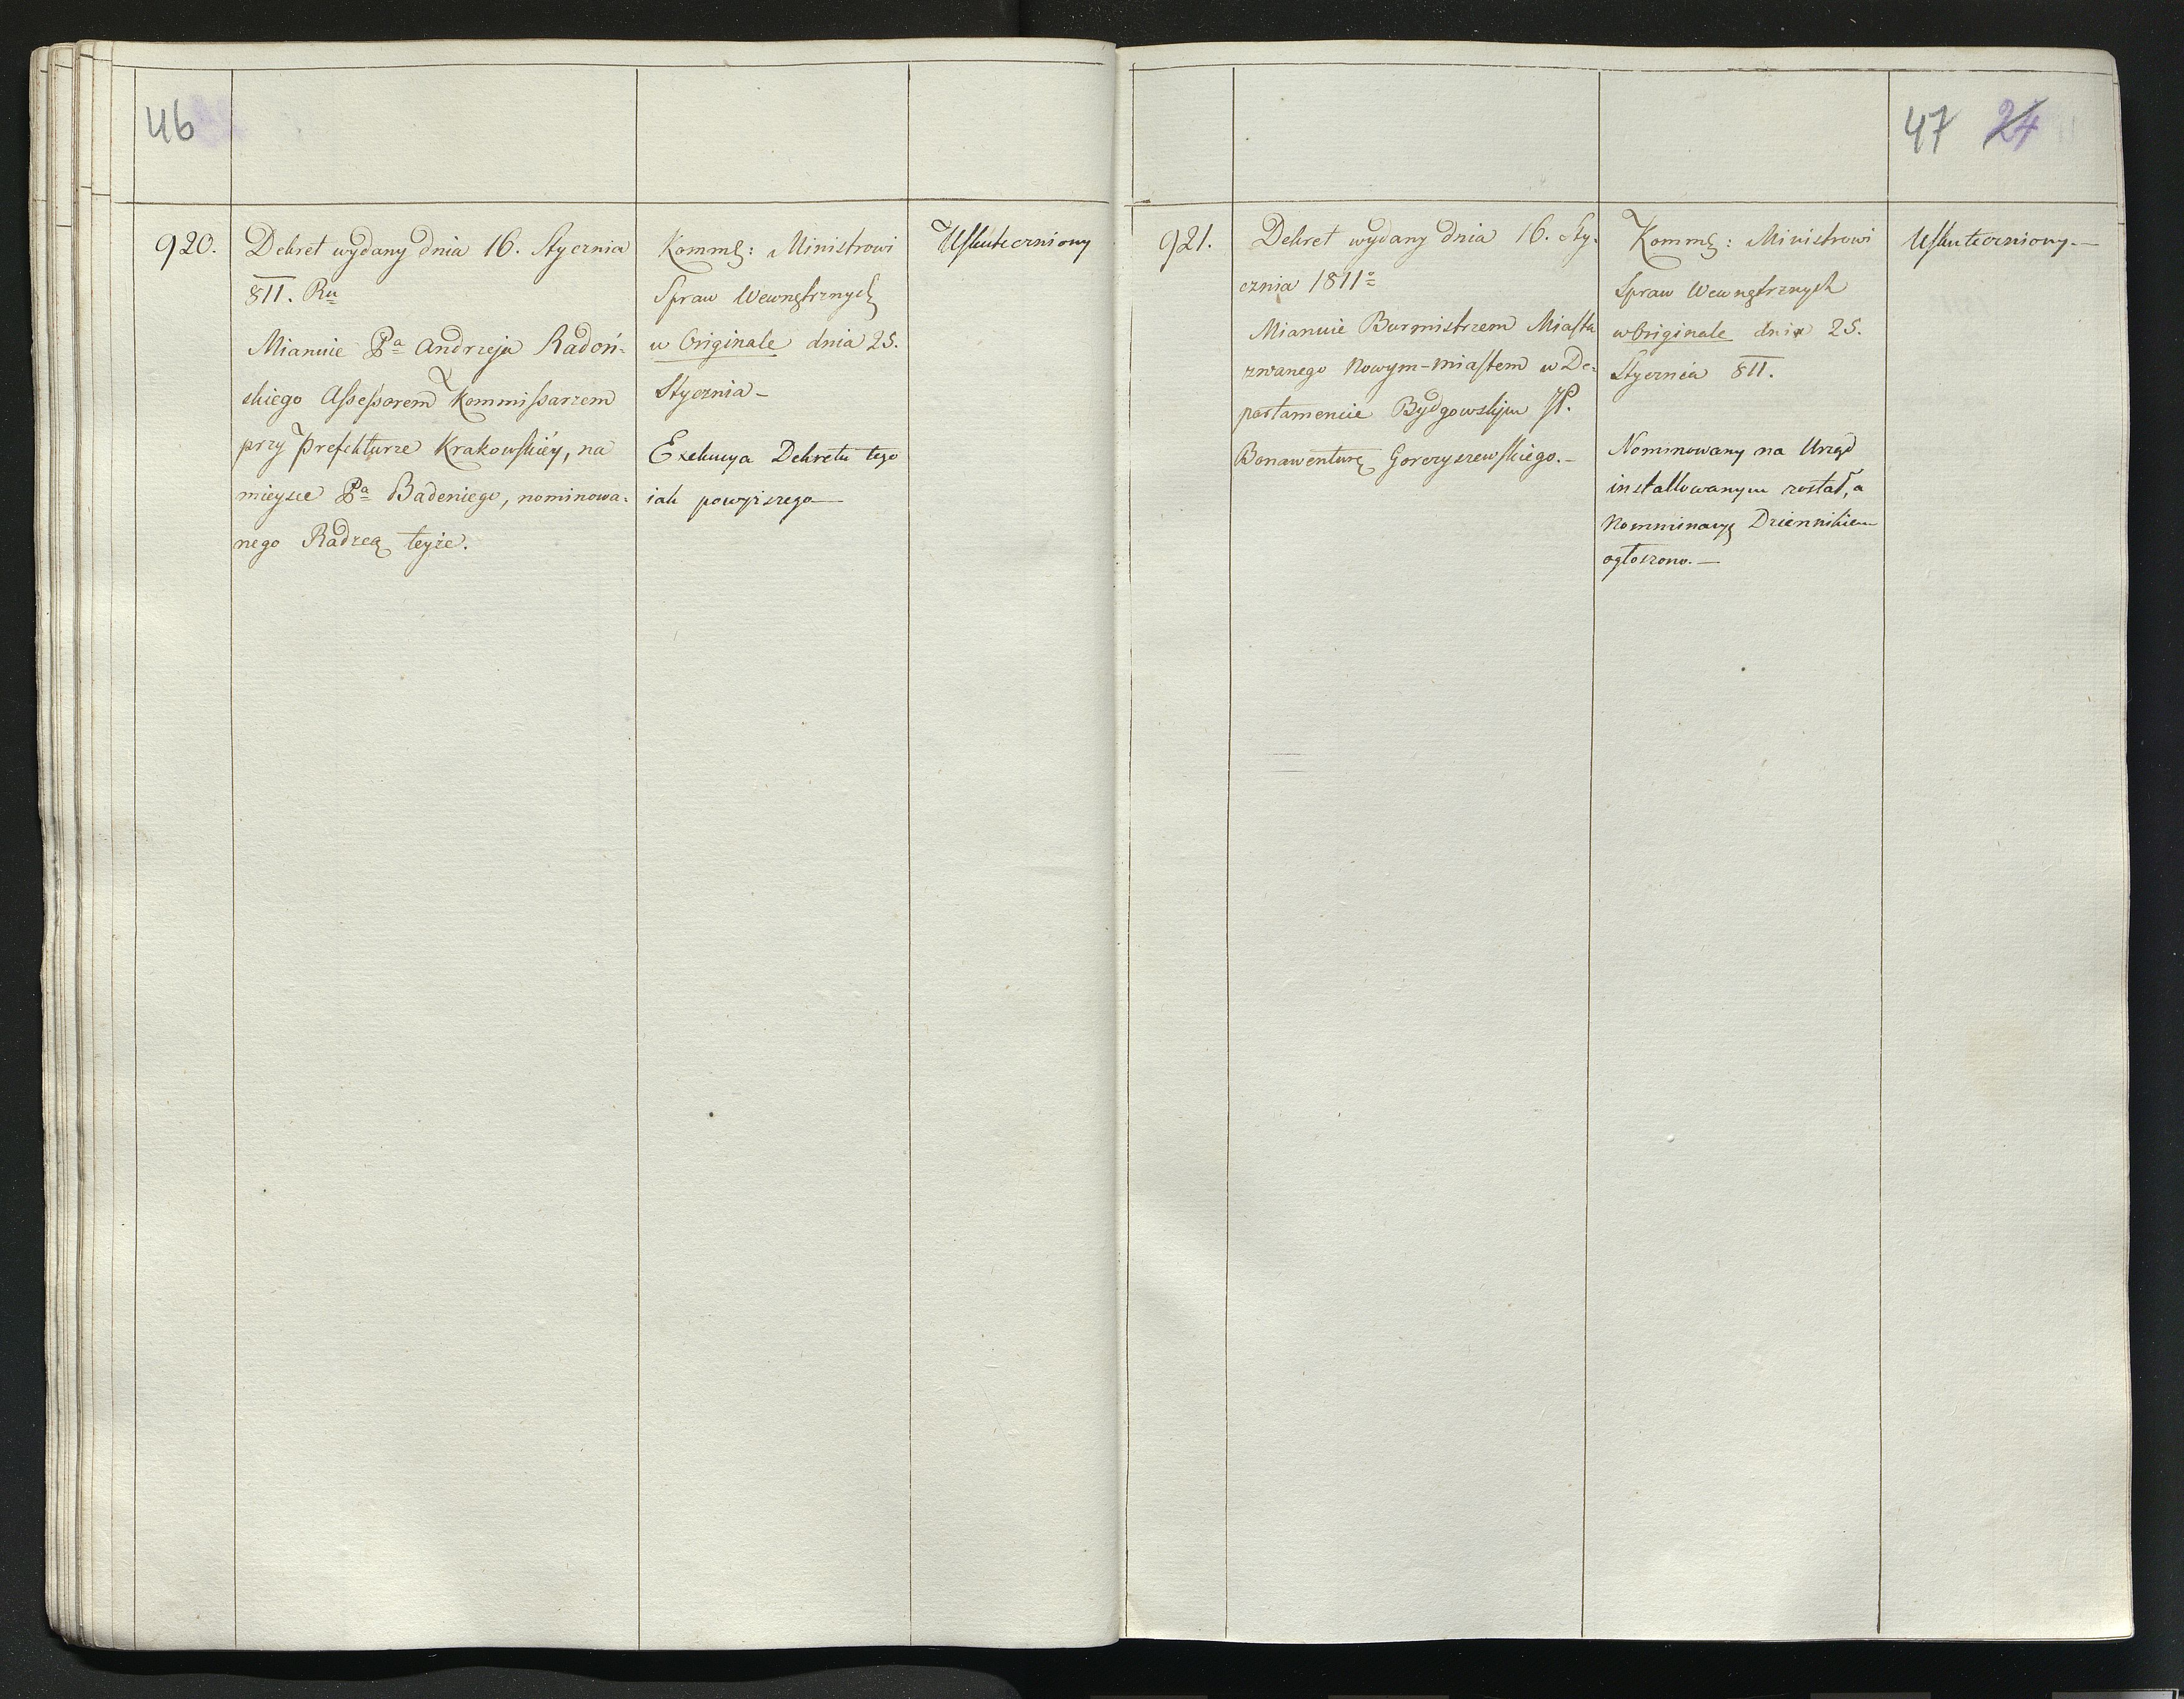 46
920.
Dekret wydany dnia 16. Stycznia
811. Ru
Mianuie Pa Andrzeja Radoń-
skiego Assessorem Kommissarzem
przy Prefekturze Krakowskiéy, na
mieysce Pa Badeniego, nominowa-
nego Radzcą teyże.
Komm: Ministrowi
Spraw Wewnętrznych
w Originale dnia 25.
Stycznia -
Exekucya Dekretu tego
iak powyższego —
Uskuteczniony
47 24
921.
Dekret wydany dnia 16. Sty-
cznia 1811o
Mianuie Burmistrzem Miasta
zwanego Nowym-miastem w De-
partamencie Bydgowskym JP.
Bonawenturę Gorczyszewskiego. -
Komm: Ministrowi
Spraw Wewnętrznych
w Originale dnia 25.
Stycznia 811.
Nominowany na Urząd
installowanym został, a
Nomminacyę Dziennikiem
ogłoszono. —
Uskuteczniony. —